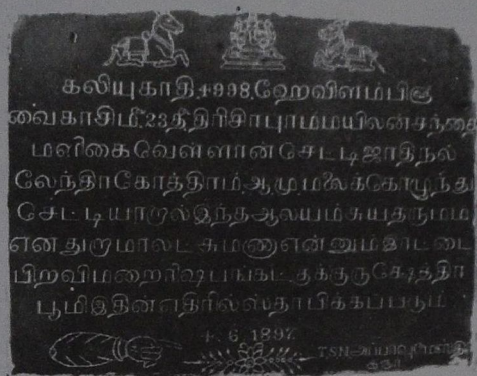 கலியுகாதி 4998, ஹேவிளம்பி ௵
வைகாசி௴ 23 தீ திரிசிராபுரம் மயிலன்சந்தை
மளிகை வெள்ளான் செட்டி ஜாதி நல்
லேந்திர கோத்திரம் ஆறுமுமலைக்கொழுந்து
செட்டியாரால் இந்த ஆலயம் சுயதருமம்
என துரு மால ட்சுமணு என்னும் இரட்டை
பிறவி மறை ரிஷபங்கட்குக் குருக்ஷேத்திர
பூமி இதின் எதிரில் ஸ்தாபிக்கப்படும்
4. 6. 1897.
TSN